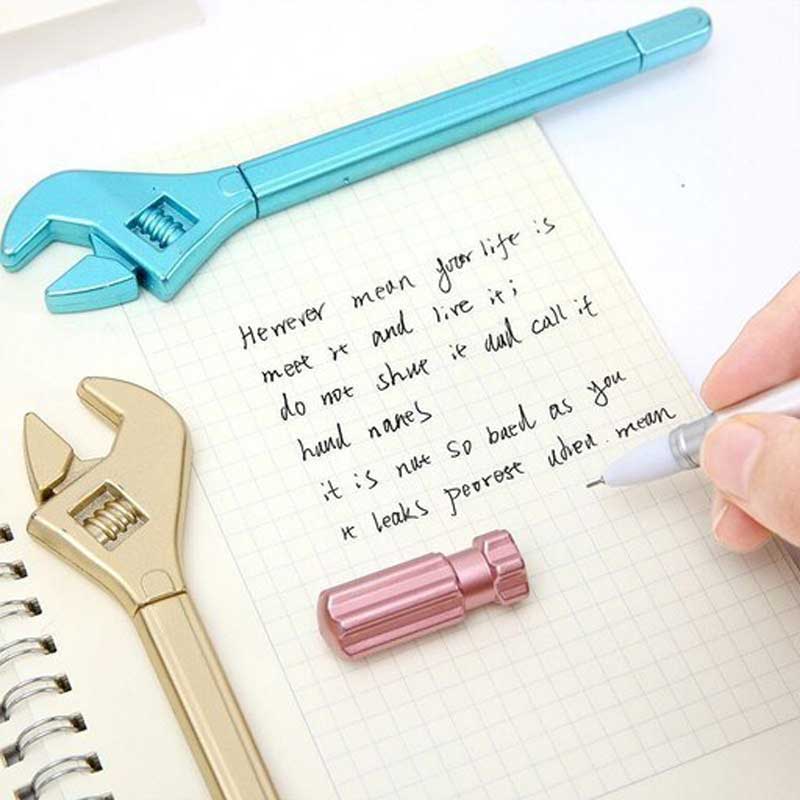 Herrever mean your life is
meet it and live it;
do not shue it dud call it
hand nanes
it is not so baed as you
it leaks peorest uhen mean